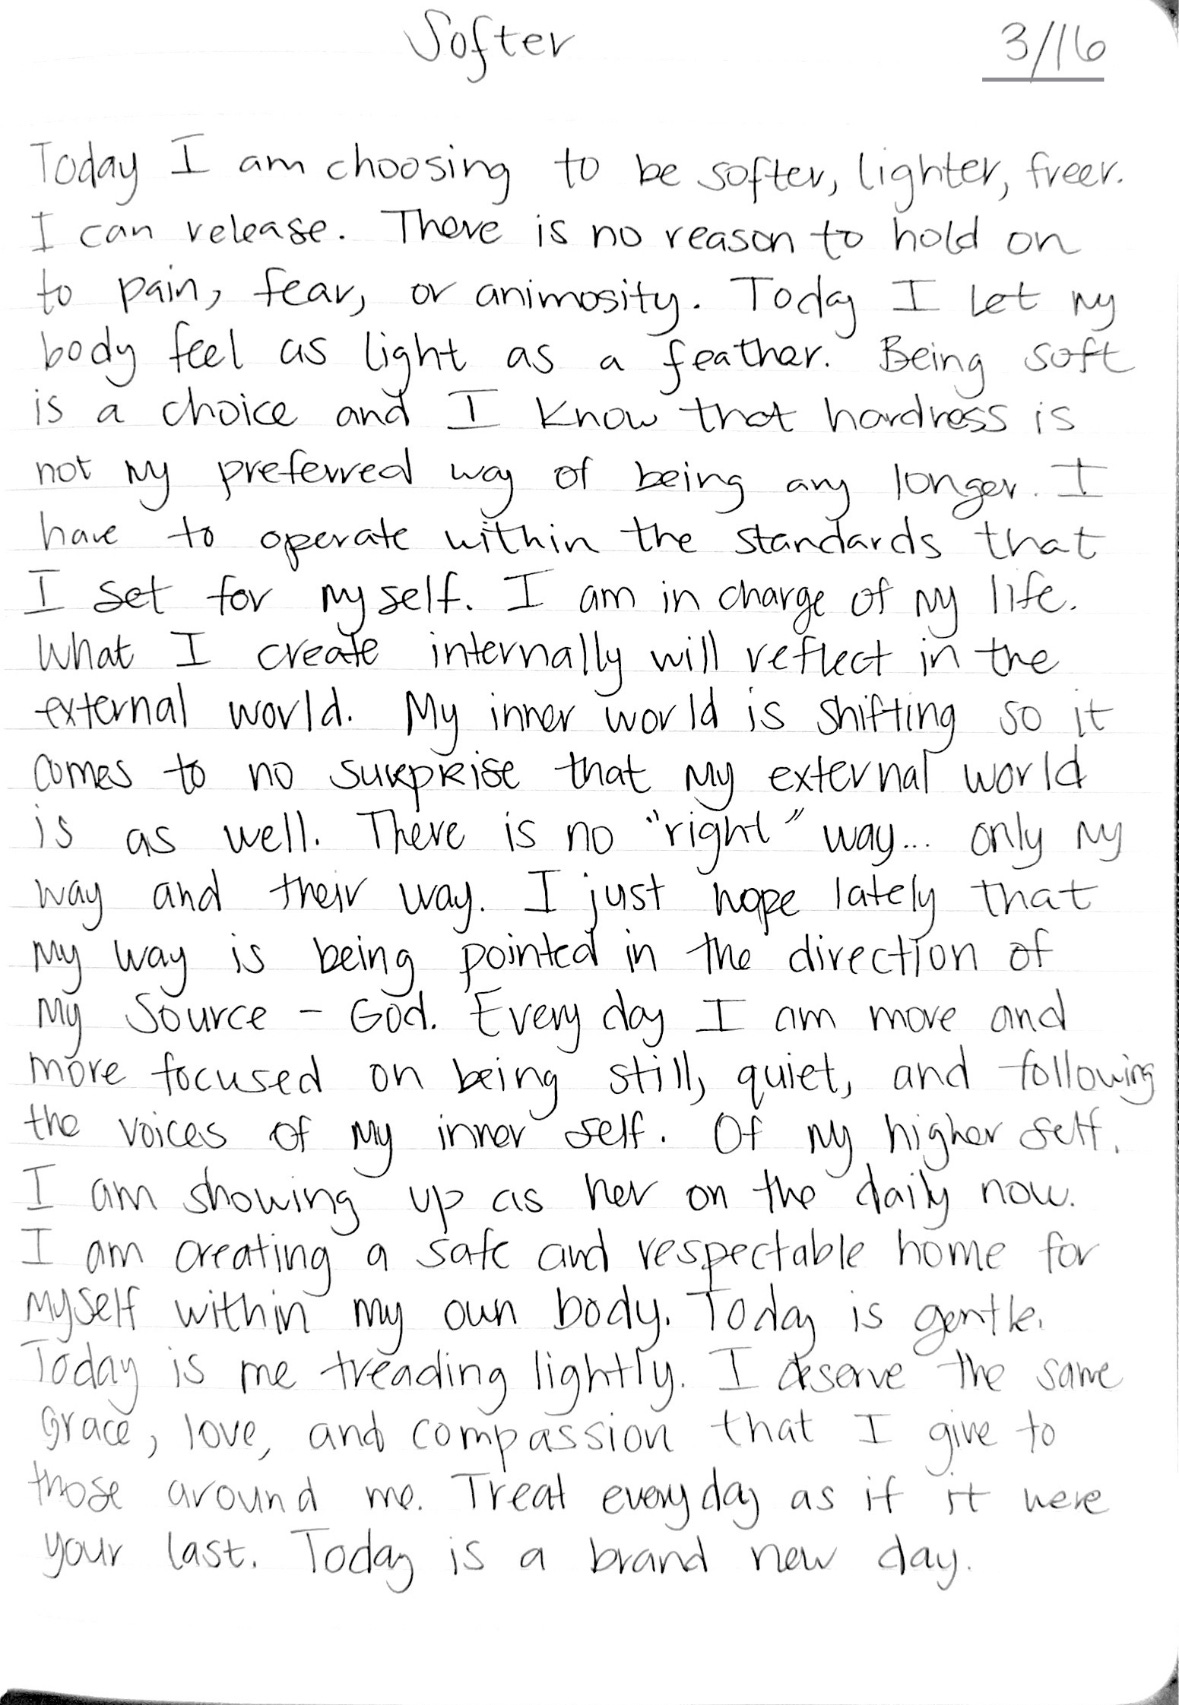 Softer
3/16
Today I am choosing to be softer, lighter, freer.
I can release. There is no reason to hold on
to pain, fear, or animosity. Today I let my
body feel as light as a feather. Being soft
is a choice and I know that hardness is
not my preferred way of being any longer. I
have to operate within the standards that
I set for myself. I am in charge of my life.
What I create internally will reflect in the
external world. My inner world is shifting so it
comes to no surprise that my external world
is as well. There is no "right" way... only my
way and their way. I just hope lately that
my way is being pointed in the direction of
my Source - God. Every day I am more and
more focused on being still, quiet, and following
the voices of my inner self. Of my higher self.
I am showing up as her on the daily now.
I am creating a safe and respectable home for
myself within my own body. Today is gentle.
Today is me treading lightly. I deserve the same
grace, love, and compassion that I give to
those around me. Treat every day as if it were
your last. Today is a brand new day.